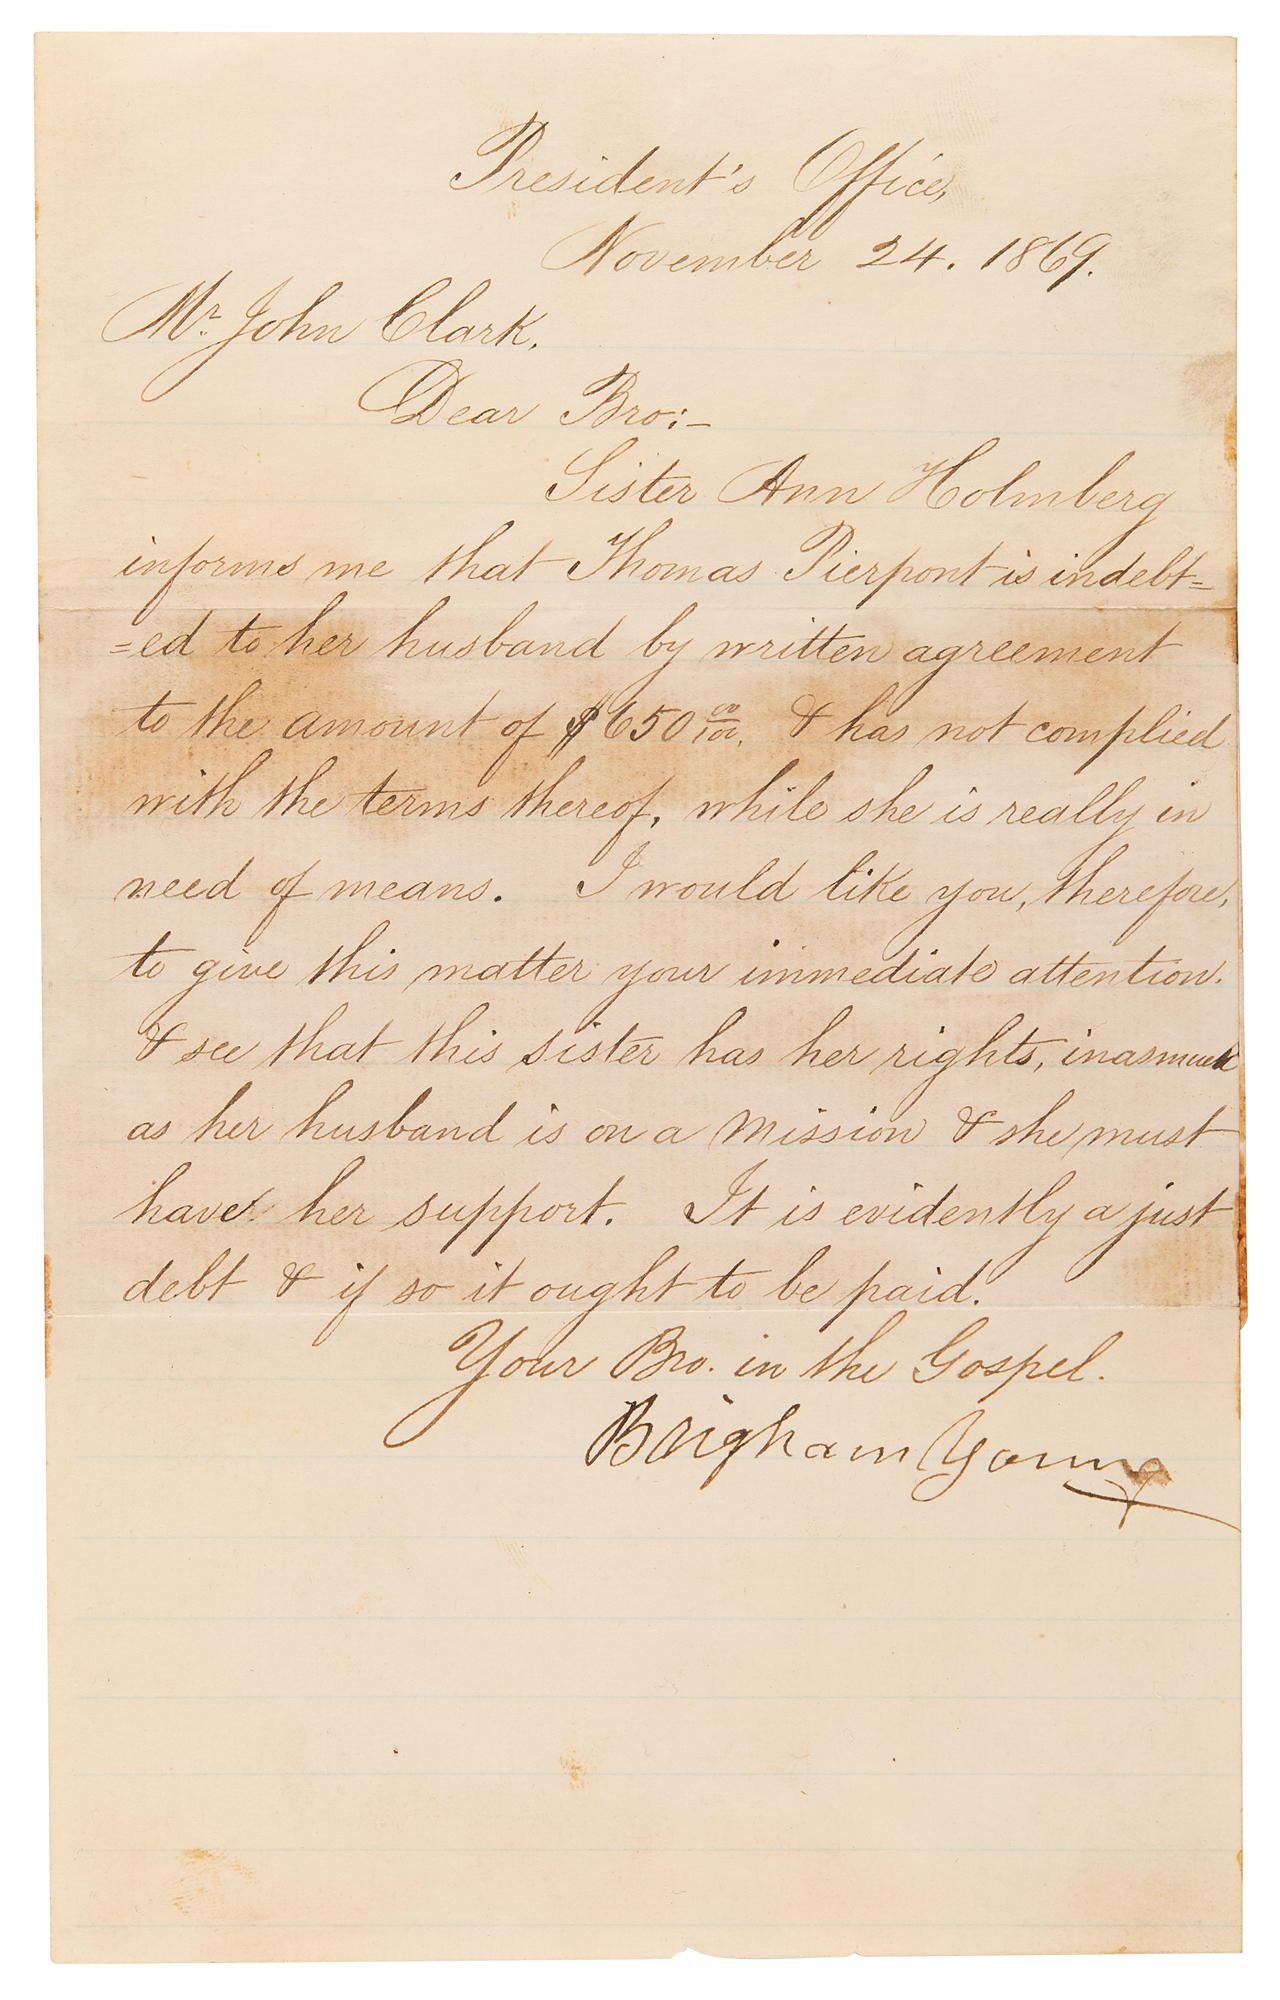 President's Office,
November 24. 1869.
Mr. John Clark.
Dear Bro:–
Sister Ann Holmberg
informs me that Thomas Pierpont is indebt=
=ed to her husband by written agreement
to the amount of $650 00/100. & has not complied
with the terms thereof, while she is really in
need of means. I would like you, therefore,
to give this matter your immediate attention.
& see that this sister has her rights, inasmuch
as her husband is on a mission & she must
have her support. It is evidently a just
debt & if so it ought to be paid.
Your Bro. in the Gospel.
Brigham Young